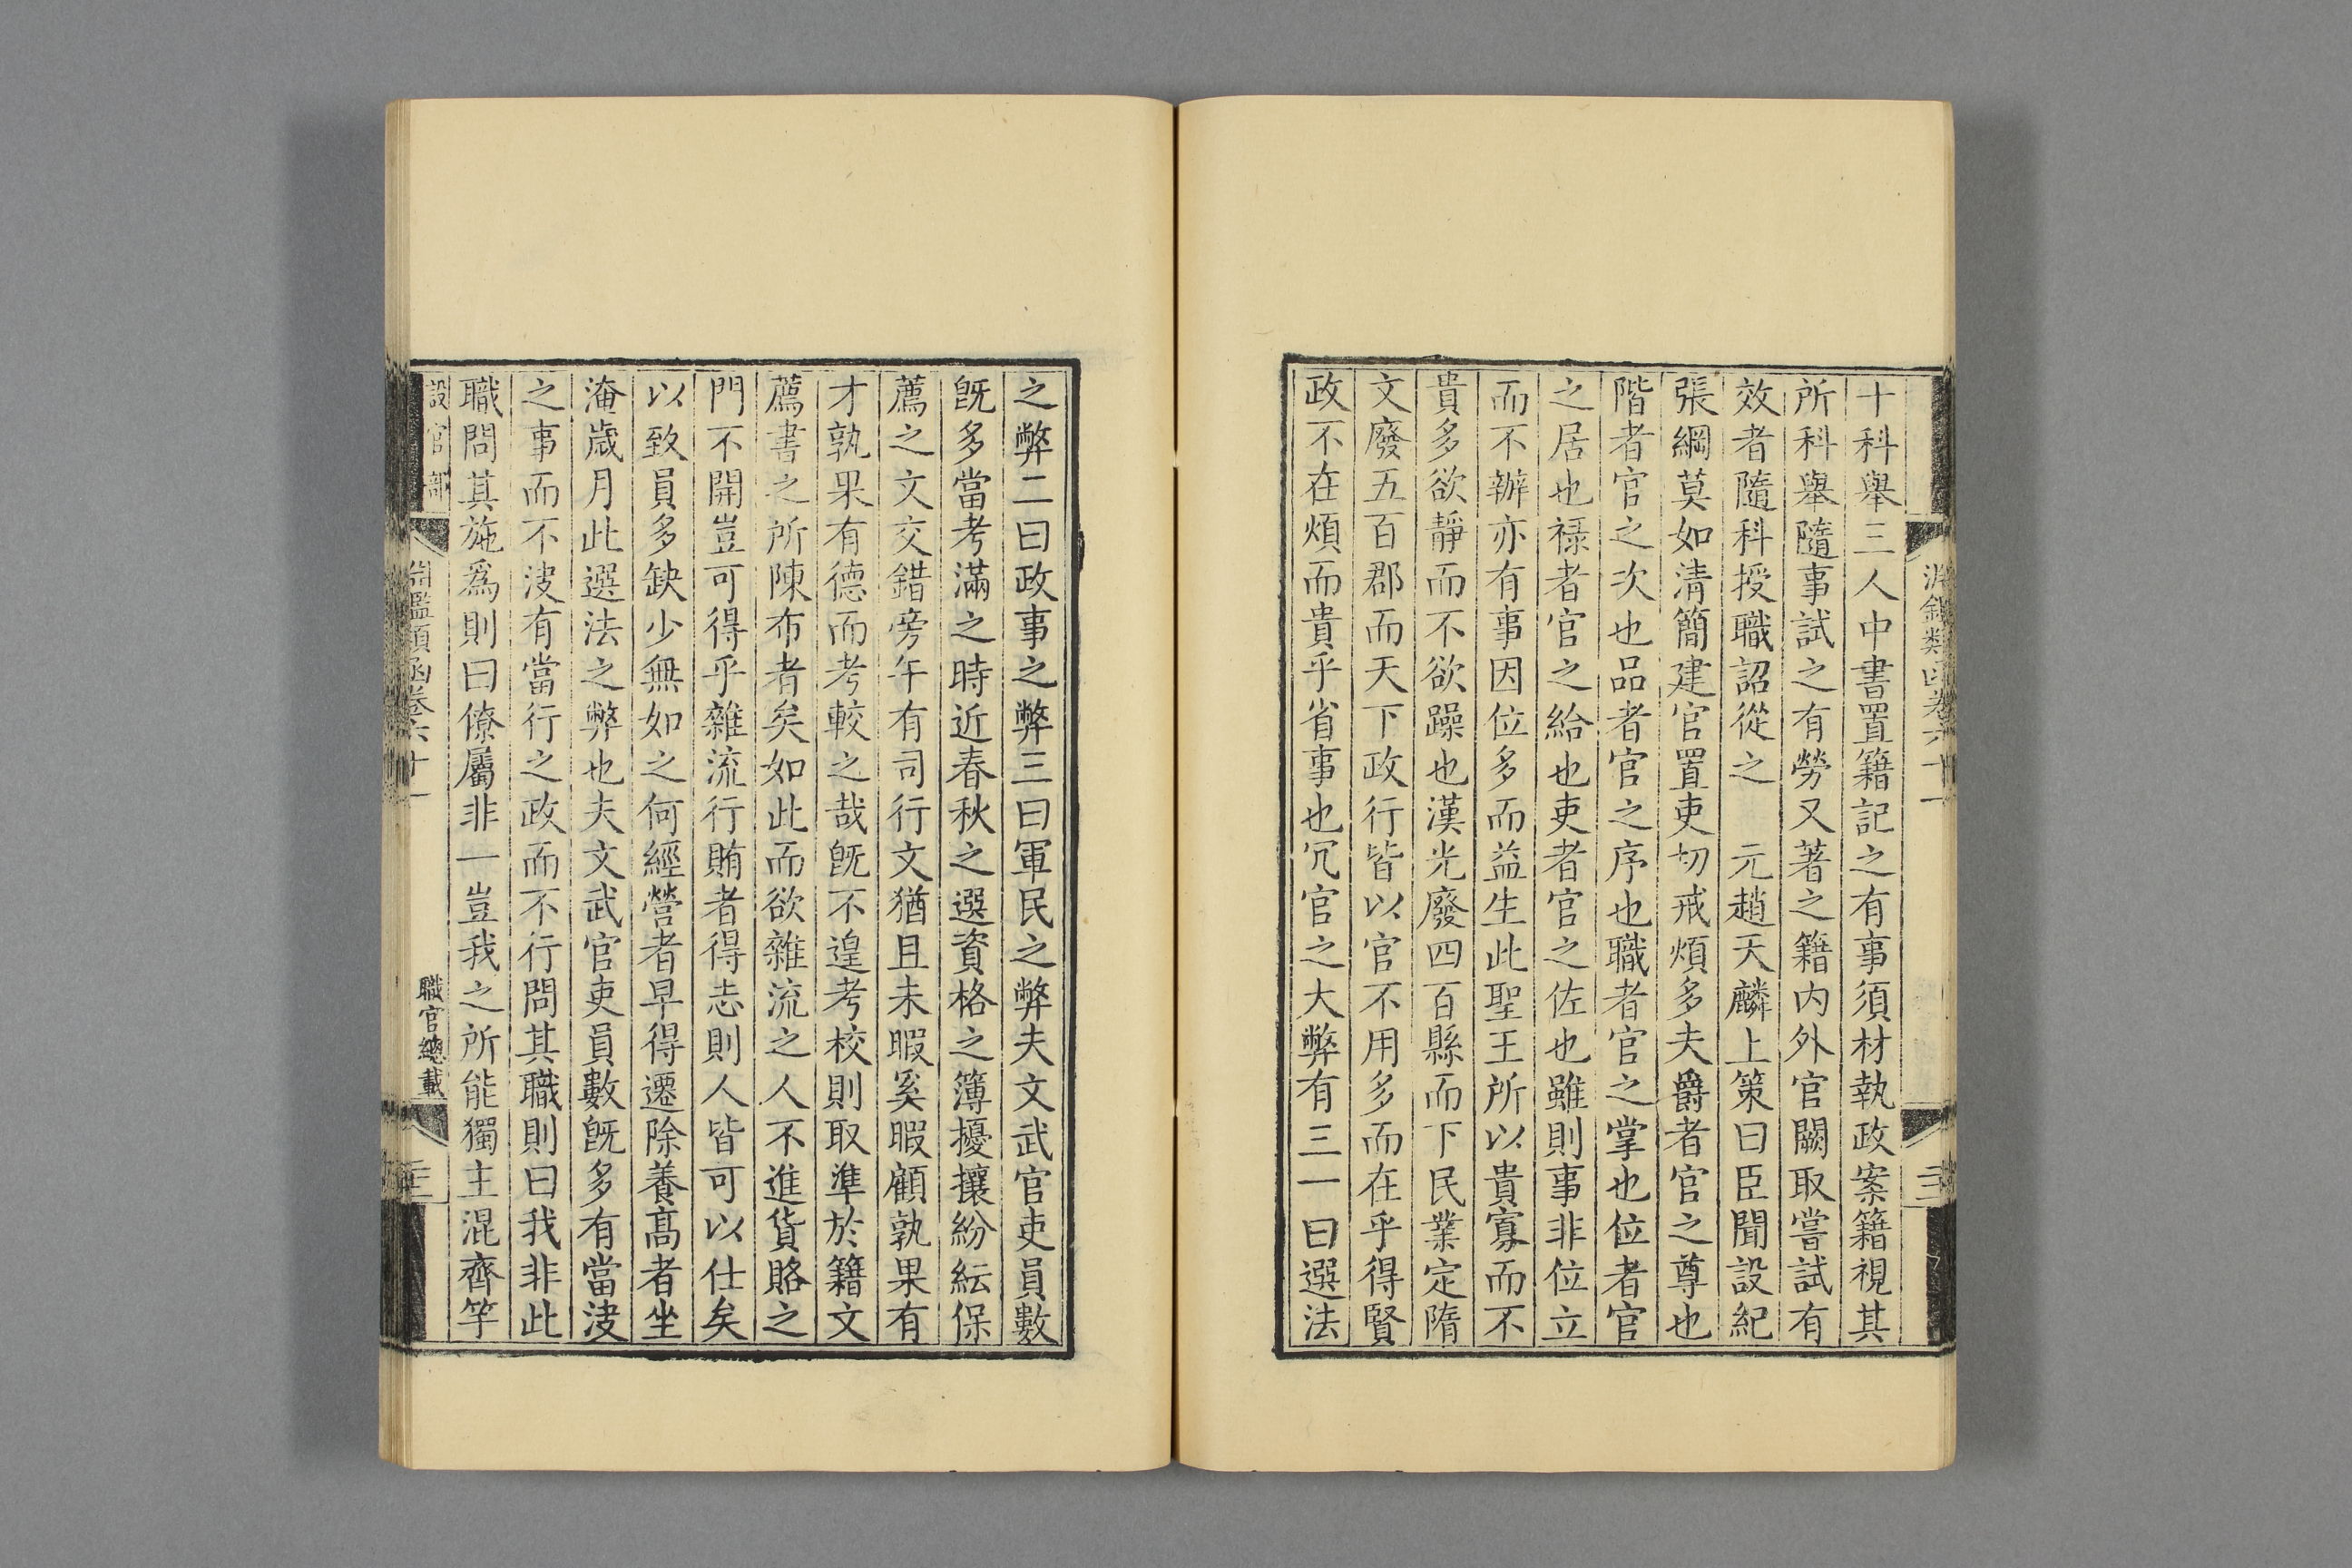 十科舉三人中書置籍記之有事須材執政案籍視其
所科舉隨事試之有勞又著之籍內外官闕取嘗試有
效者隨科授職詔從之　元趙天麟上策曰臣聞設紀
張綱莫如清簡建官置吏切戒煩多夫爵者官之尊也
階者官之次也品者官之序也職者官之掌也位者官
之居也祿者官之給也吏者官之佐也雖則事非位立
而不辦亦有事因位多而益生此聖王所以貴寡而不
貴多欲靜而不欲躁也漢光廢四百縣而下民業定隋
文廢五百郡而天下政行皆以官不用多而在乎得賢
政不在煩而貴乎省事也冗官之大弊有三一曰選法
之弊二曰政事之弊三曰軍民之弊夫文武官吏員數
旣多當考滿之時近春秋之選資格之簿擾攘紛紜保
薦之文交錯旁午有司行文猶且未暇奚暇顧孰果有
才孰果有德而考較之哉旣不遑考校則取準於籍文
薦書之所陳布者矣如此而欲雜流之人不進貨賂之
門不開豈可得乎雜流行賄者得志則人皆可以仕矣
以致員多缺少無如之何經營者早得遷除養高者坐
淹歲月此選法之弊也夫文武官吏員數旣多有當決
之事而不決有當行之政而不行問其職則曰我非此
職問其施爲則曰僚屬非一豈我之所能獨主混齊竽
設官部
淵鑑類函卷六十一
職官總載